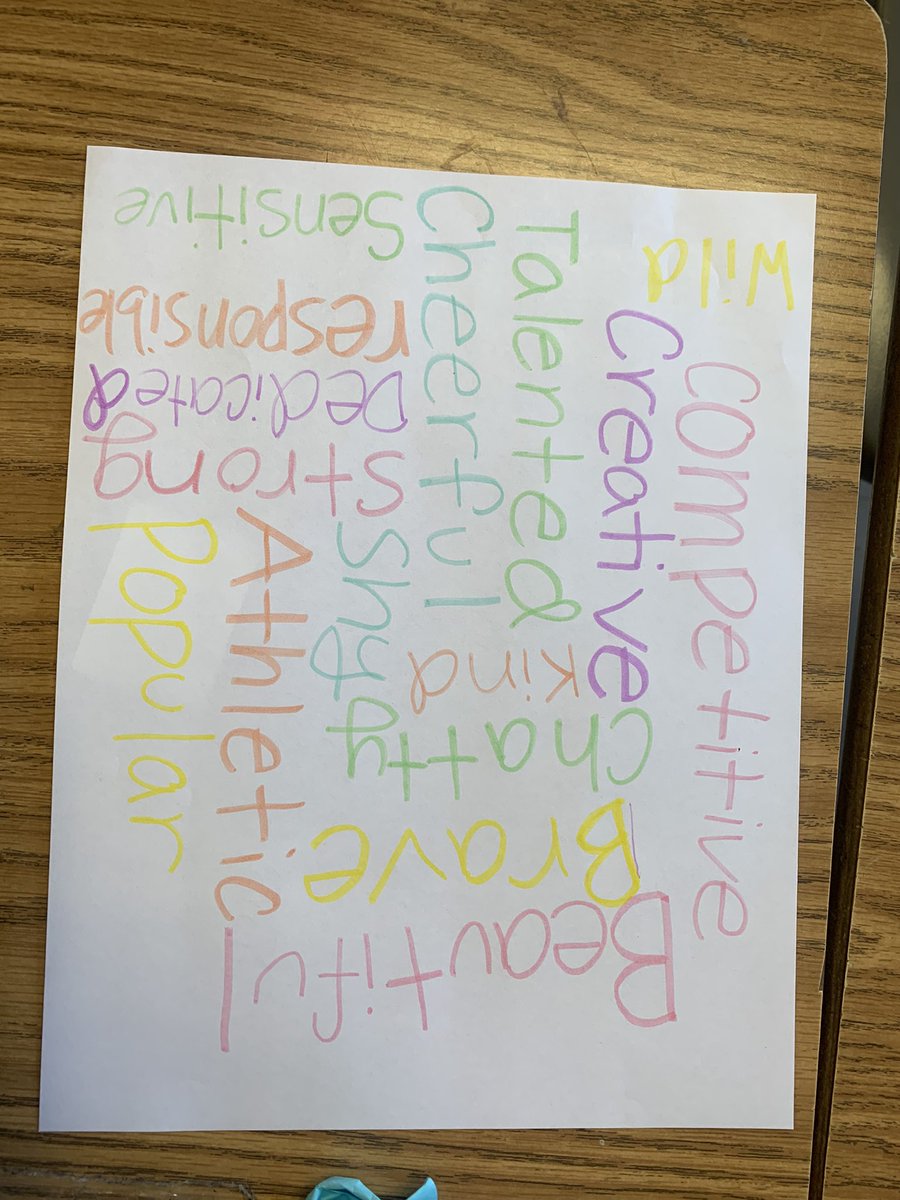 Wild
Competitive
Creative
Talented
Cheerful
Sensitive
responsible
Dedicated
Strong
Shy
Kind
Chatty
Athletic
Popular
Brave
Beautiful